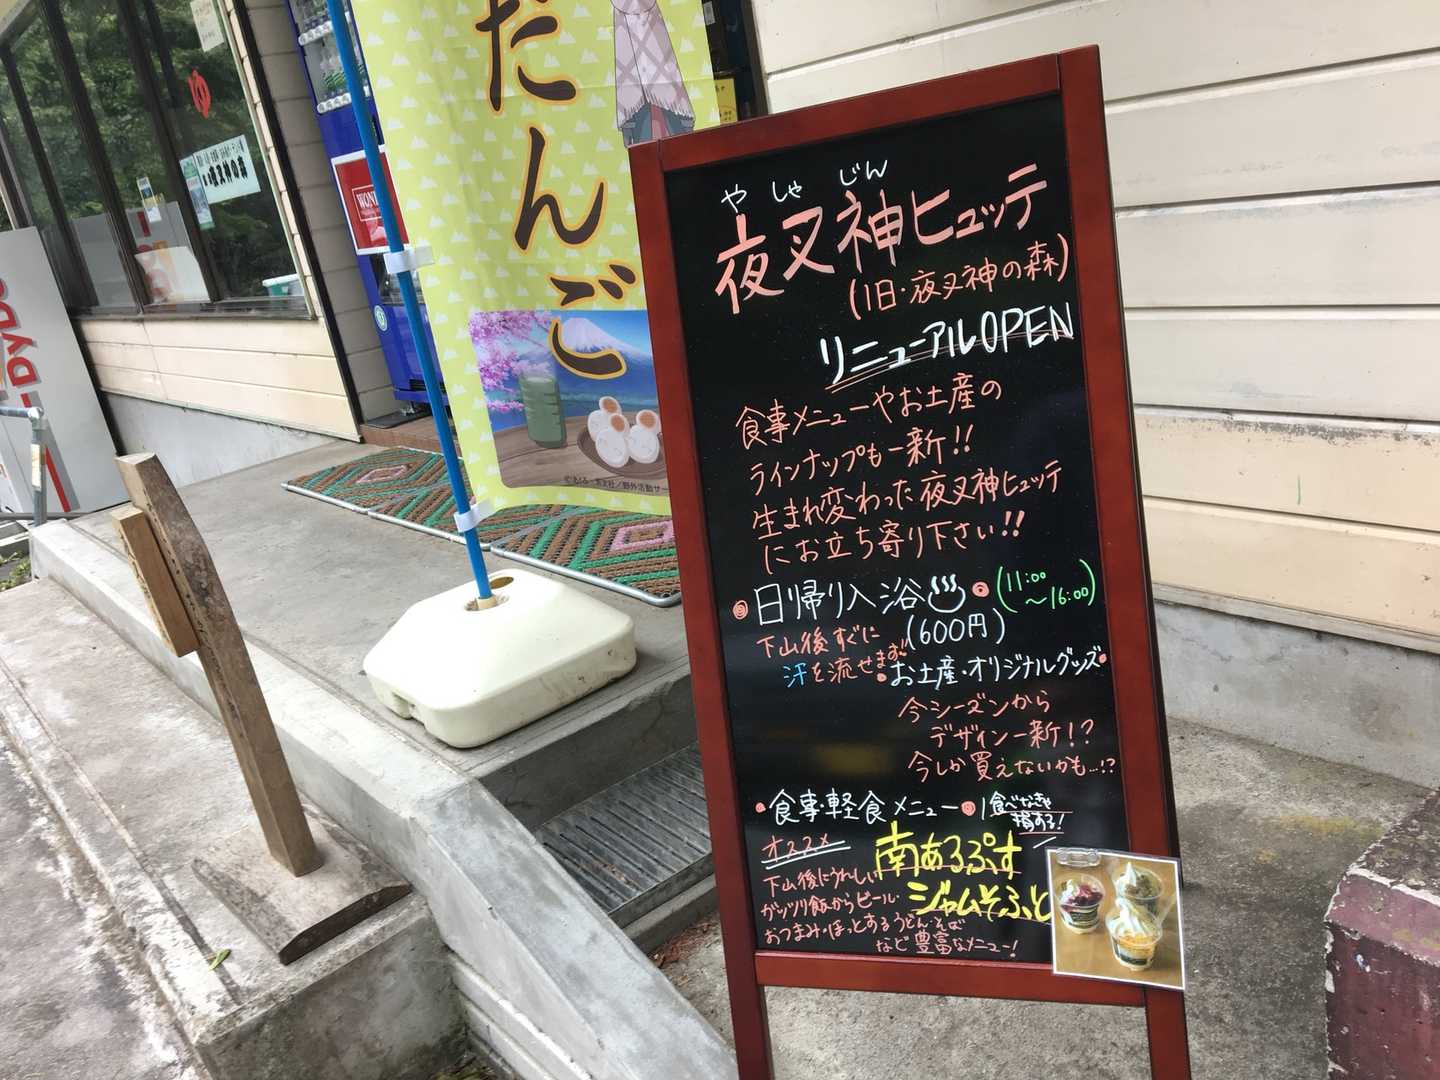 だんご
ゆ
夜叉神の森
WON
DyDo
やしゃじん
夜叉神ヒュッテ
(旧・夜叉神の森)
リニューアルOPEN
食事メニューやお土産の
ラインナップも一新!!
生まれ変わった夜叉神ヒュッテ
にお立ち寄り下さい!!
日帰り入浴♨
(11:00
～16:00)
(600円)
下山後すぐに
汗を流せます
お土産・オリジナルグッズ
今シーズンから
デザイン一新!?
今しか買えないかも…!?
食事・軽食メニュー
食べなきゃ
損する!
オススメ
南あるぷす
ジャムそふと
下山後にうれしい
ガッツリ飯からビール・
おつまみ・ほっとするうどん・そば
など豊富なメニュー!